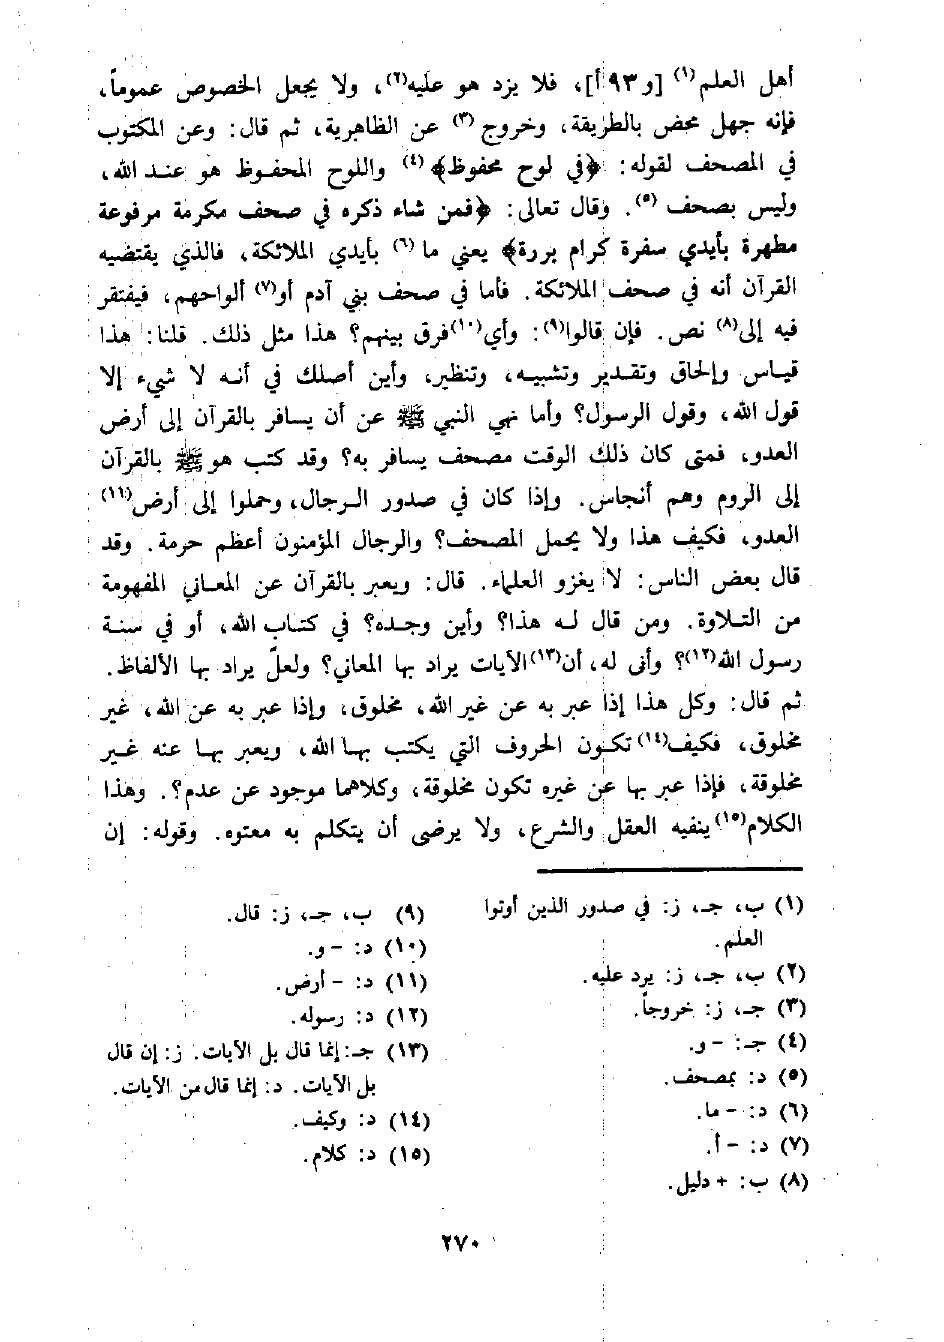 أهل العلم(١) [و ٩٣ أ]، فلا يزد هو عليه(٢)، ولا يجعل الخصوص عموماً،
فإنه جهل محض بالطريقة، وخروج(٣) عن الظاهرية، ثم قال: وعن المكتوب
في المصحف لقوله: ﴿في لوح محفوظ﴾(٤) واللوح المحفوظ هو عند الله،
وليس بصحف(٥). وقال تعالى: ﴿فمن شاء ذكره في صحف مكرمة مرفوعة
مطهرة بأيدي سفرة كرام بررة﴾ يعني ما(٦) بأيدي الملائكة، فالذي يقتضيه
القرآن أنه في صحف الملائكة. فأما في صحف بني آدم أو(٧) ألواحهم، فيفتقر
فيه إلى(٨) نص. فإن قالوا(٩): وأي(١٠) فرق بينهم؟ هذا مثل ذلك. قلنا: هذا
قياس وإلحاق وتقدير وتشبيه، وتنظير، وأين أصلك في أنه لا شيء إلا
قول الله، وقول الرسول؟ وأما نهي النبي ﷺ عن أن يسافر بالقرآن إلى أرض
العدو، فمتى كان ذلك الوقت مصحف يسافر به؟ وقد كتب هو ﷺ بالقرآن
إلى الروم وهم أنجاس. وإذا كان في صدور الرجال، وحملوا إلى أرض(١١)
العدو، فكيف هذا ولا يحمل المصحف؟ والرجال المؤمنون أعظم حرمة. وقد
قال بعض الناس: لا يغزو العلماء. قال: ويعبر بالقرآن عن المعاني المفهومة
من التلاوة. ومن قال له هذا؟ وأين وجده؟ في كتاب الله، أو في سنة
رسول الله(١٢)؟ وأنى له، أن(١٣) الآيات يراد بها المعاني؟ ولعلّ يراد بها الألفاظ.
ثم قال: وكل هذا إذا عبر به عن غير الله، مخلوق، وإذا عبر به عن الله، غير
مخلوق، فكيف(١٤) تكون الحروف التي يكتب بها الله، ويعبر بها عنه غير
مخلوقة، فإذا عبر بها عن غيره تكون مخلوقة، وكلاهما موجود عن عدم؟. وهذا
الكلام(١٥) ينفيه العقل والشرع، ولا يرضى أن يتكلم به معتوه. وقوله: إن
(١) ب، جـ، ز: في صدور الذين أوتوا
العلم.
(٢) ب، جـ، ز: يرد عليه.
(٣) جـ، ز: خروجاً.
(٤) جـ: - و.
(٥) د: بمصحف.
(٦) د: - ما.
(٧) د: - أ.
(٨) ب: + دليل.
(٩) ب، جـ، ز: قال.
(١٠) د: - و.
(١١) د: - أرض.
(١٢) د: رسوله.
(١٣) جـ: إنما قال بل الآيات. ز: إن قال
بل الآيات. د: إنما قال من الآيات.
(١٤) د: وكيف.
(١٥) د: كلام.
٢٧٠